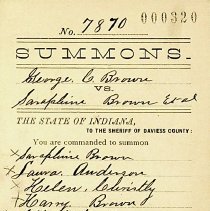 No. 7870 000320
SUMMONS.
George C. Brown
VS.
Saraphine Brown Et al
THE STATE OF INDIANA,
TO THE SHERIFF OF DAVIESS COUNTY:
You are commanded to summon
x Saraphine Brown
x Laura Anderson
x Helen
x Harry Brown